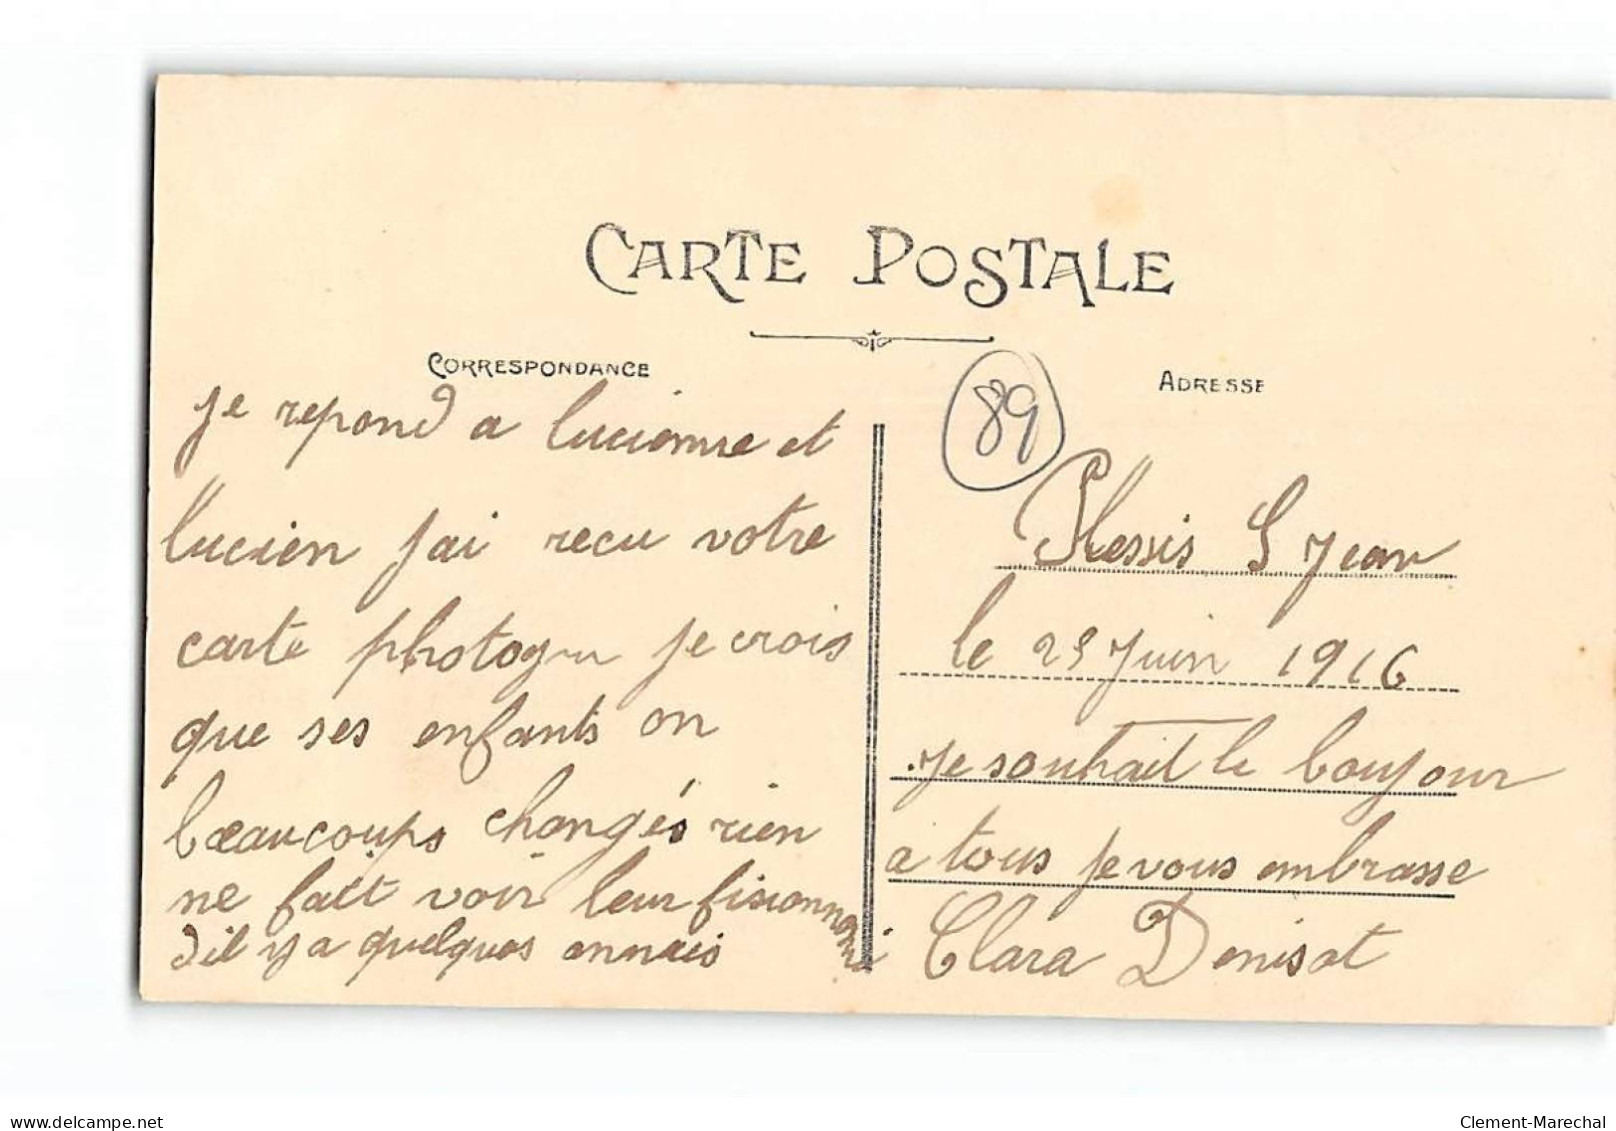 CARTE POSTALE
CORRESPONDANCE
je repond a lucienne et
lucien jai recu votre
carte photogra je crois
que ses enfants on
beaucoups changés rien
ne fait voir leur fisionnomi
dil y a quelques annais
89
ADRESSE
Plessis S Jean
le 25 juin 1916
je souhait le boujour
a tous je vous embrasse
Clara Denisot
www.delcampe.net
Clement-Marechal